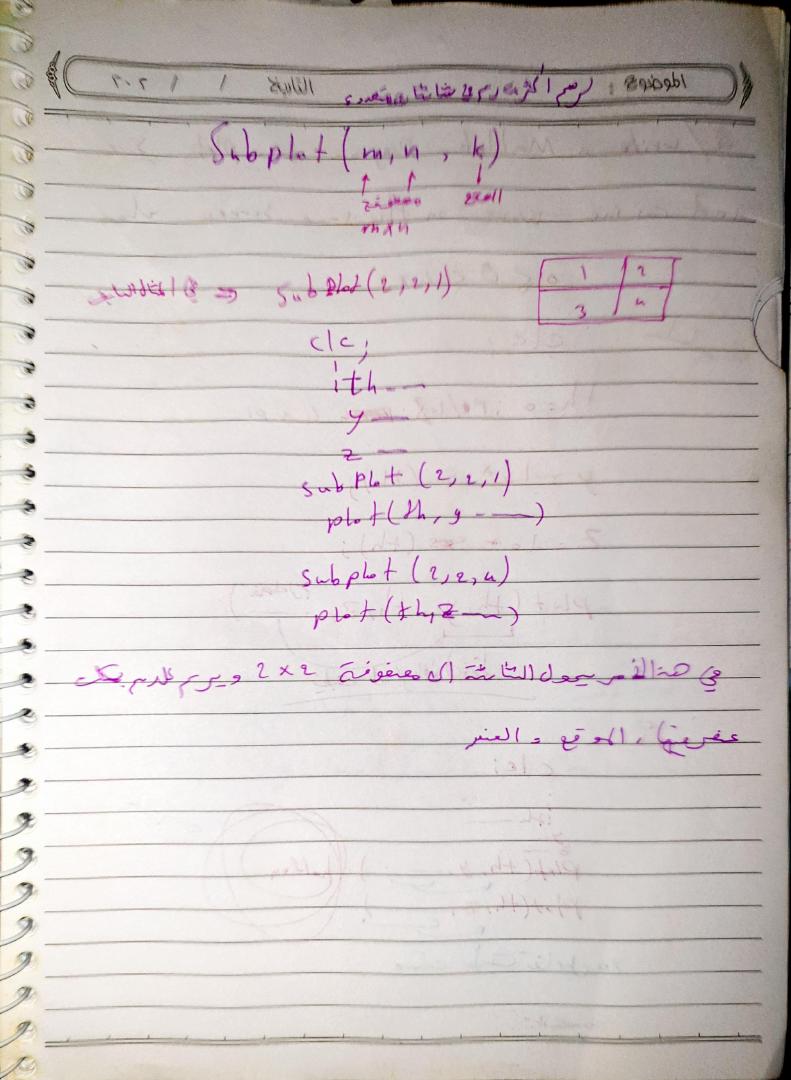 الموضوع : لرسم أكثر من رسم في شاشات متعددة التاريخ / / ٢٠٢
Subplot (m, n , k)
مصفوفة الموقع
m x n
في المثال السابق ⇒ SubPlot (2, 2, 1)
1 2
3 4
clc;
th
y
z
subPlot (2, 2, 1)
plot (th, y )
Subplot (2, 2, 4)
plot (th, z )
في هذا الأمر يحول الشاشة الى مصفوفة 2 x 2 ويرسم
الموقع و العنصر